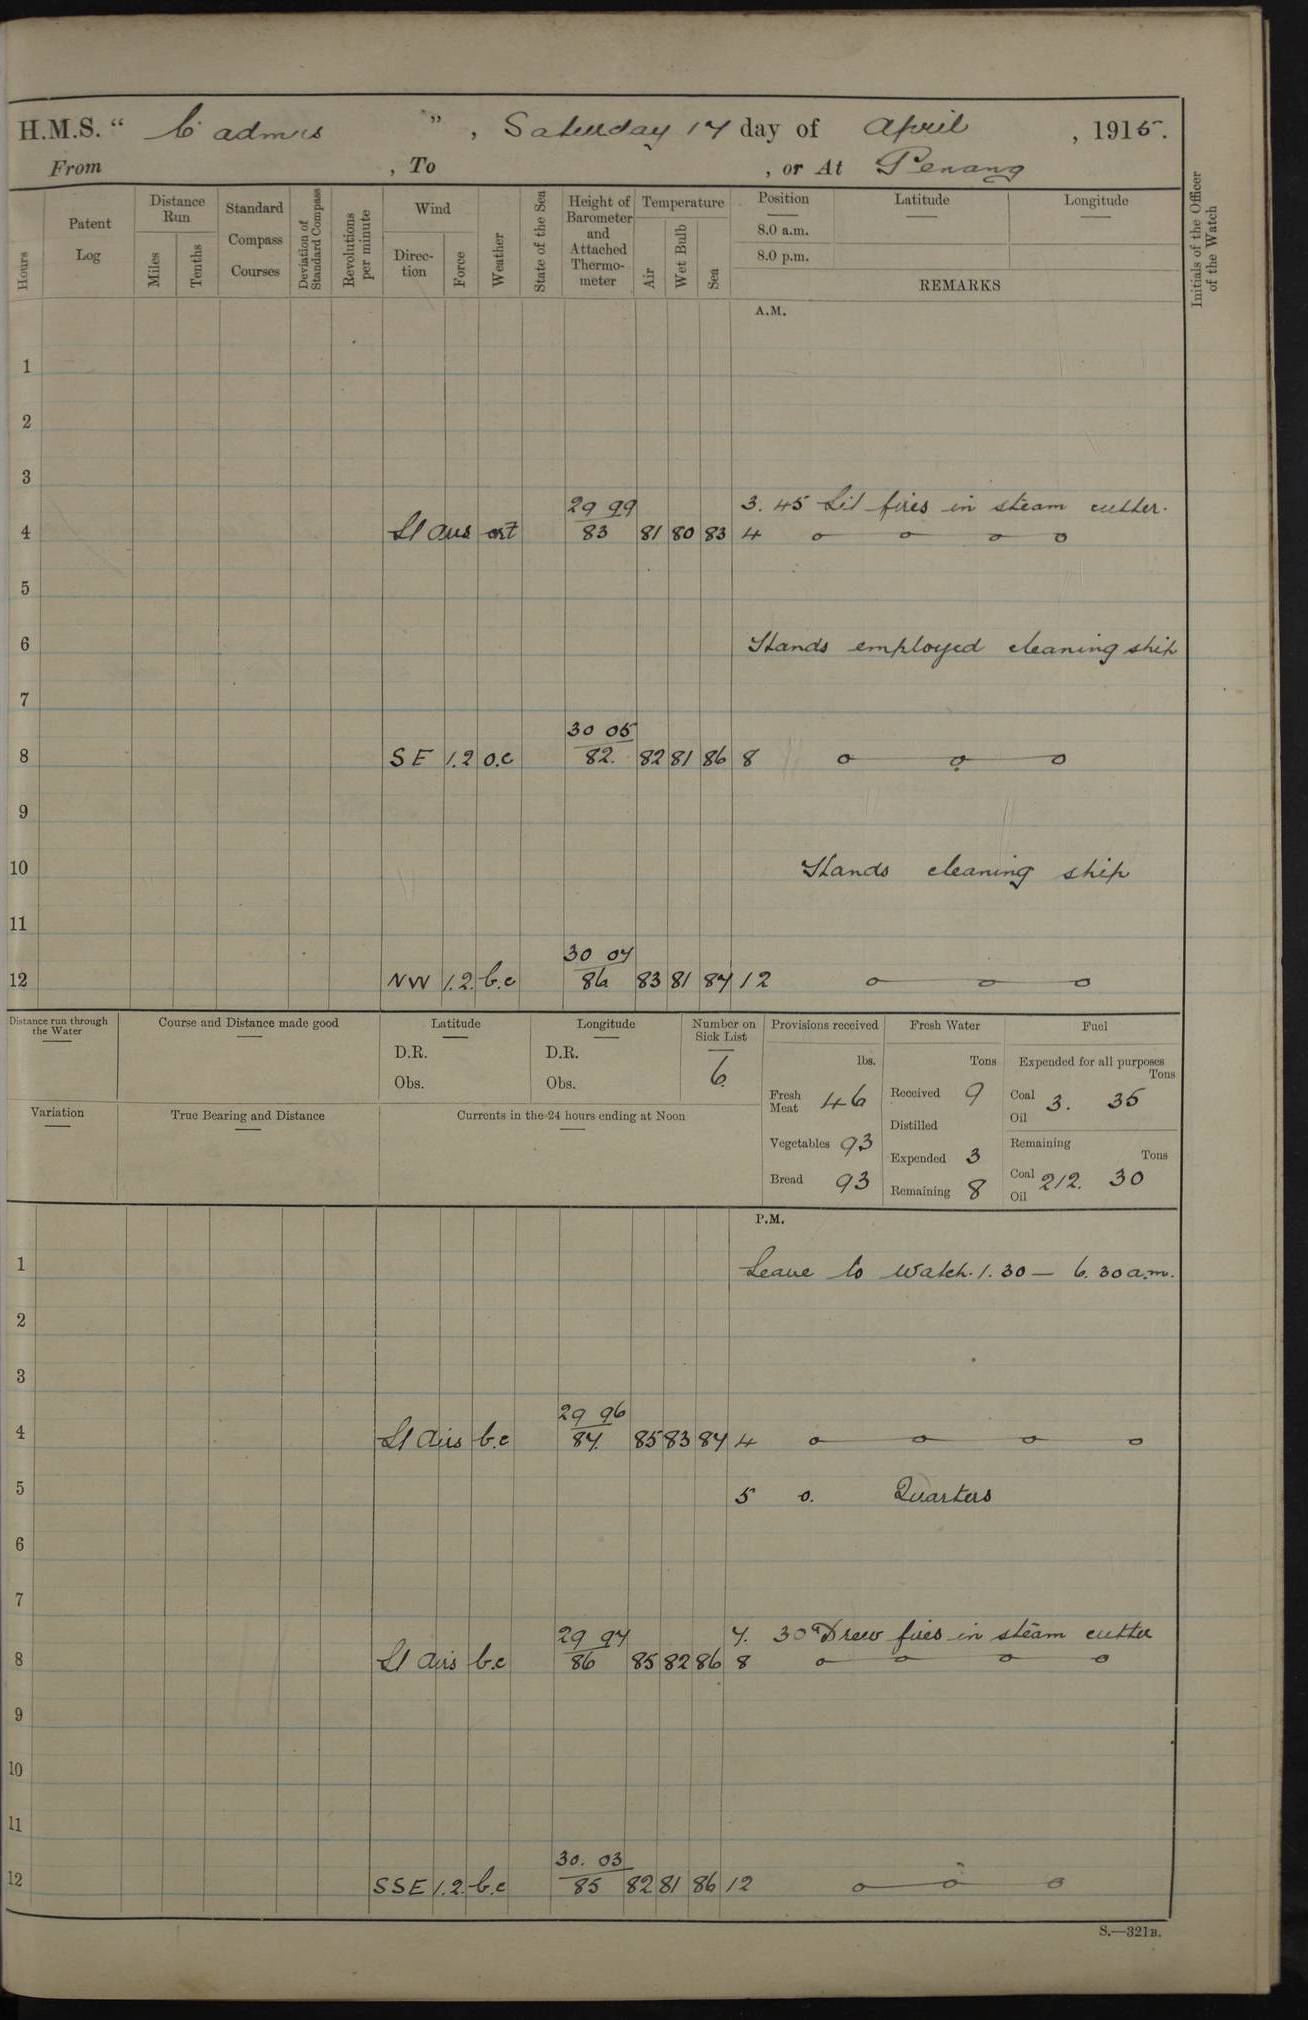 H.M.S. “ Cadmus ” , Saturday 17 day of April , 1915.
From , To , or At Penang
Hours
Patent Log
Distance Run
Miles
Tenths
Standard Compass Courses
Deviation of Standard Compass
Revolutions per minute
Wind
Direc-tion
Force
Weather
State of the Sea
Height of Barometer and Attached Thermo-meter
Temperature
Air
Wet Bulb
Sea
Position
8.0 a.m.
8.0 p.m.
Latitude
Longitude
REMARKS
Initials of the Officer of the Watch
A.M.
1
2
3
29 99 3. 45 Lit fires in steam cutter.
4 Lt airs 83 81 80 83 4 o o o o
5
6 Hands employed cleaning ship
7
30 05
8 SE 1.2 o.c 82. 82 81 86 8 o o o
9
10 Hands cleaning ship
11
30 07
12 NW 1.2. b.c 86 83 81 87 12 o o o
Distance run through the Water
Course and Distance made good
Latitude
D.R.
Obs.
Longitude
D.R.
Obs.
Number on Sick List
6.
Variation
True Bearing and Distance
Currents in the 24 hours ending at Noon
Provisions received
lbs.
Fresh Meat 46
Vegetables 93
Bread 93
Fresh Water
Tons
Received 9
Distilled
Expended 3
Remaining 8
Fuel
Expended for all purposes
Tons
Coal 3. 35
Oil
Remaining
Tons
Coal 212. 30
Oil
P.M.
1 Leave to watch. 1.30 — 6.30 a.m.
2
3
29 96
4 Lt Airs b.c 87. 85 83 87 4 o o o o
5 5 0. Quarters
6
7
29 97 7. 30 Drew fires in steam cutter
8 Lt Airs b.c 86 85 82 86 8 o o o o
9
10
11
30. 03
12 SSE 1.2. b.c 85 82 81 86 12 o o o
S.—321B.